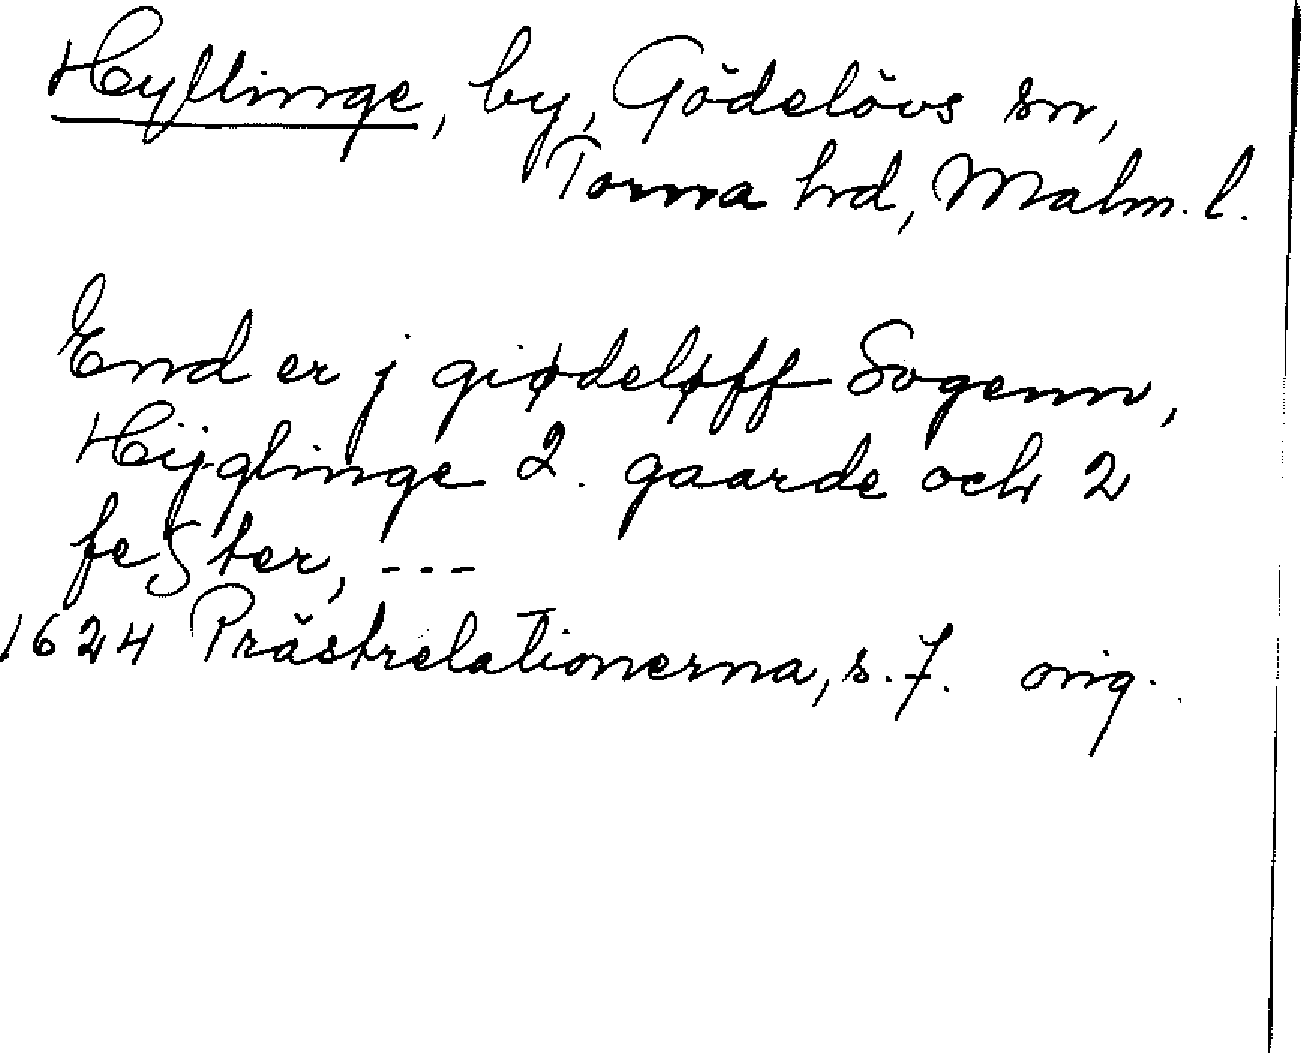 Hyllinge, by, Gödelövs sn,
Torna hrd, Malm. l.
End er j giødeløff Sogenn,
Hÿglinge 2. gaarde och 2
feSter, ---
1624 Prästrelationerna, s. 7. orig.